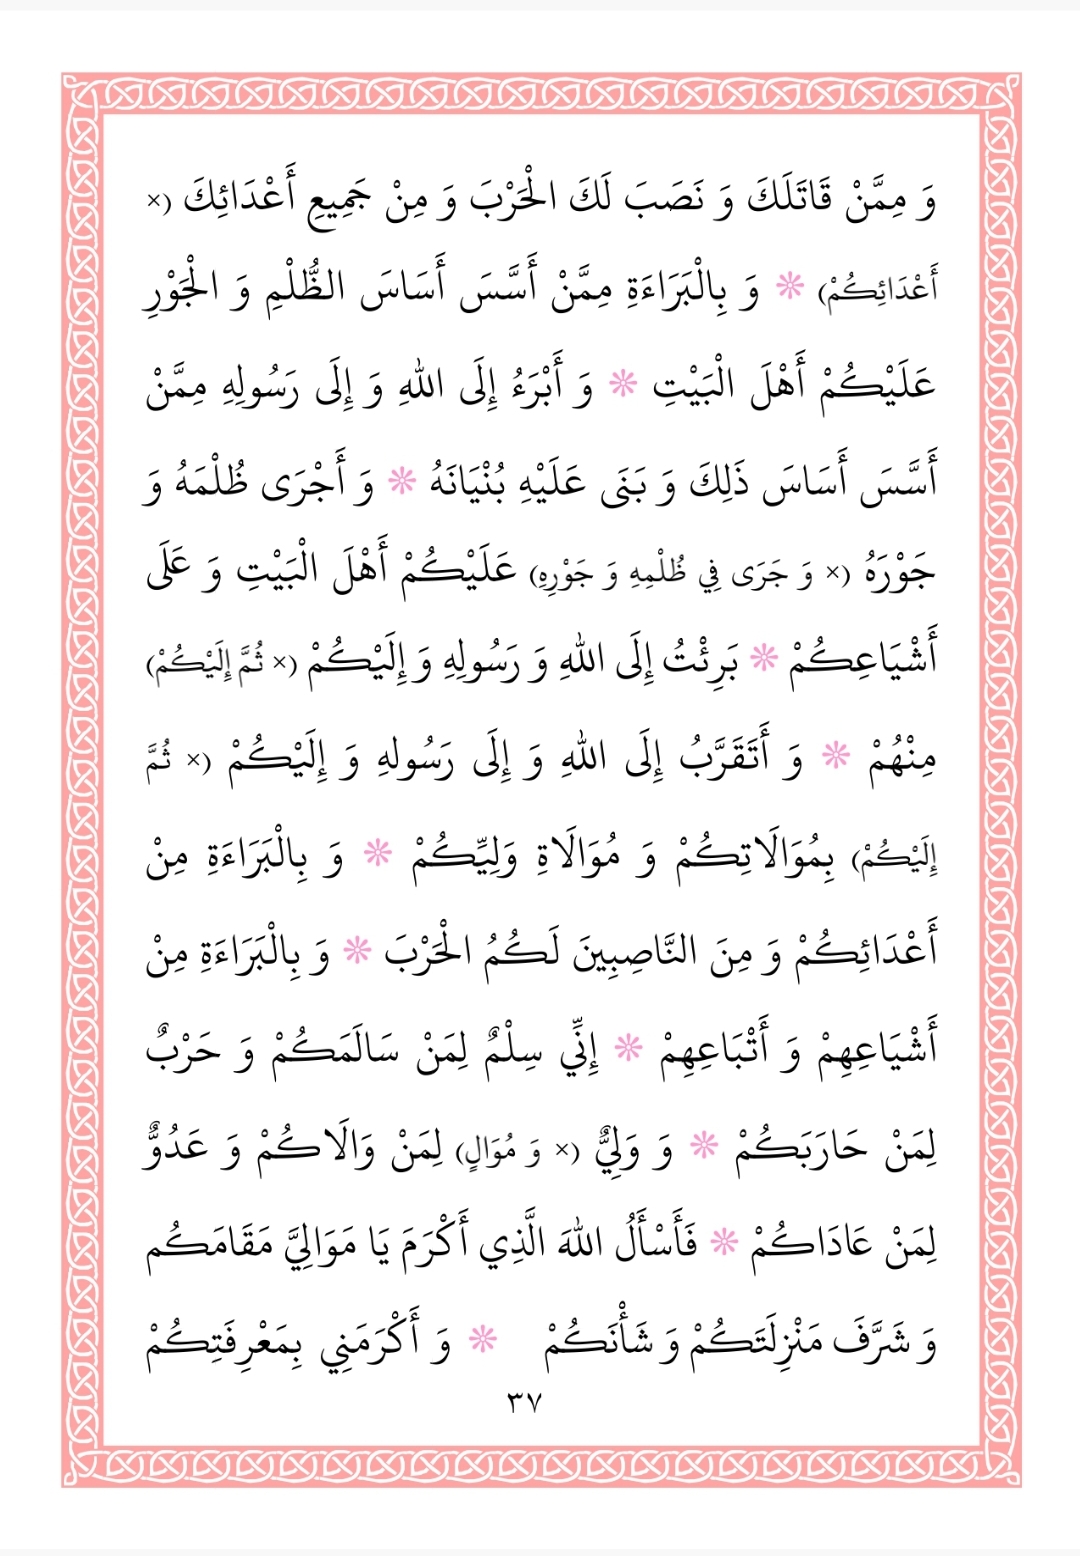 وَ مِمَّنْ قَاتَلَكَ وَ نَصَبَ لَكَ الْحَرْبَ وَ مِنْ جَمِيعِ أَعْدَائِكَ (×
أَعْدَائِكُمْ) ❊ وَ بِالْبَرَاءَةِ مِمَّنْ أَسَّسَ أَسَاسَ الظُّلْمِ وَ الْجَوْرِ
عَلَيْكُمْ أَهْلَ الْبَيْتِ ❊ وَ أَبْرَءُ إِلَى اللهِ وَ إِلَى رَسُولِهِ مِمَّنْ
أَسَّسَ أَسَاسَ ذَلِكَ وَ بَنَى عَلَيْهِ بُنْيَانَهُ ❊ وَ أَجْرَى ظُلْمَهُ وَ
جَوْرَهُ (× وَ جَرَى فِي ظُلْمِهِ وَ جَوْرِهِ) عَلَيْكُمْ أَهْلَ الْبَيْتِ وَ عَلَى
أَشْيَاعِكُمْ ❊ بَرِئْتُ إِلَى اللهِ وَ رَسُولِهِ وَ إِلَيْكُمْ (× ثُمَّ إِلَيْكُمْ)
مِنْهُمْ ❊ وَ أَتَقَرَّبُ إِلَى اللهِ وَ إِلَى رَسُولهِ وَ إِلَيْكُمْ (× ثُمَّ
إِلَيْكُمْ) بِمُوَالَاتِكُمْ وَ مُوَالَاةِ وَلِيِّكُمْ ❊ وَ بِالْبَرَاءَةِ مِنْ
أَعْدَائِكُمْ وَ مِنَ النَّاصِبِينَ لَكُمُ الْحَرْبَ ❊ وَ بِالْبَرَاءَةِ مِنْ
أَشْيَاعِهِمْ وَ أَتْبَاعِهِمْ ❊ إِنِّي سِلْمٌ لِمَنْ سَالَمَكُمْ وَ حَرْبٌ
لِمَنْ حَارَبَكُمْ ❊ وَ وَلِيٌّ (× وَ مُوَالٍ) لِمَنْ وَالَاكُمْ وَ عَدُوٌّ
لِمَنْ عَادَاكُمْ ❊ فَأَسْأَلُ اللهَ الَّذِي أَكْرَمَ يَا مَوَالِيَّ مَقَامَكُم
وَ شَرَّفَ مَنْزِلَتَكُمْ وَ شَأْنَكُمْ ❊ وَ أَكْرَمَنِي بِمَعْرِفَتِكُمْ
٣٧